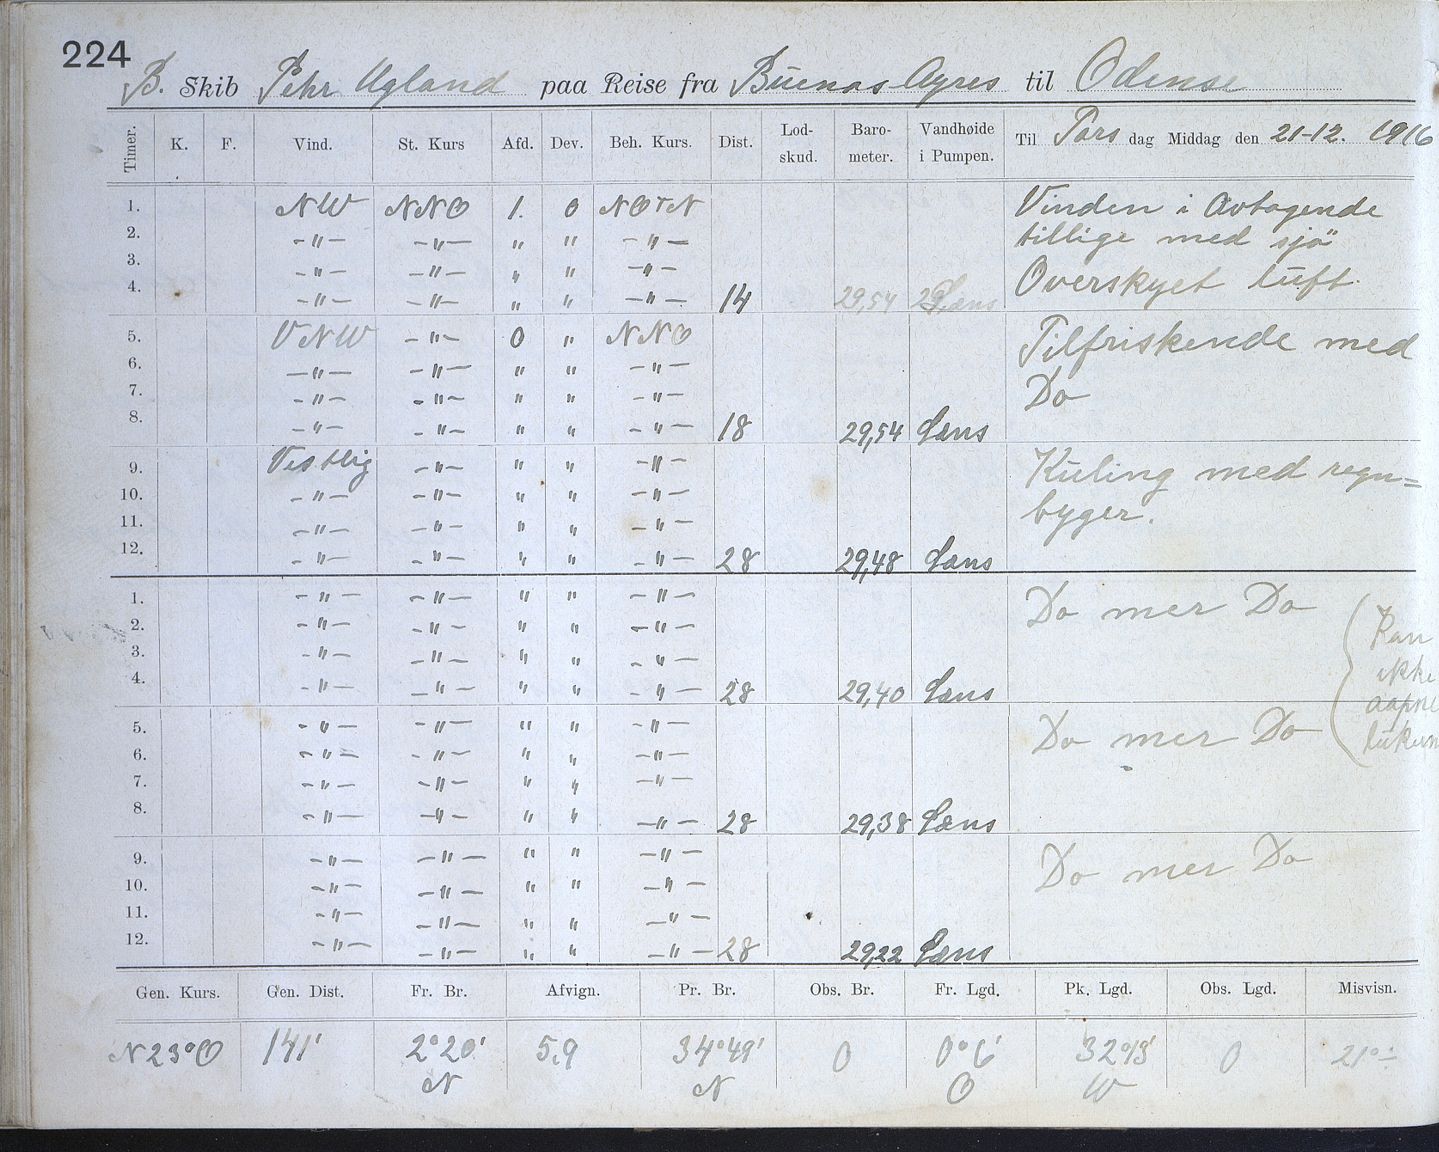 224
B. Skib Pehr Ugland paa Reise fra Buenos Ayres til Odense
Timer. K. F. Vind. St. Kurs Afd. Dev. Beh. Kurs. Dist. Lod-skud. Baro-meter. Vandhøide i Pumpen. Til Tors dag Middag den 21-12. 1916
1. NW NNO 1. 0 NOTN Vinden i Avtagende
2. -"- -"- " " -"- tillige med sjö
3. -"- -"- " " -"- Overskyet luft.
4. -"- -"- " " -"- 14 29,54 Læns
5. VNW -"- 0 " NNO Tilfriskende med
6. -"- -"- " " -"-
7. -"- -"- " " -"- Do
8. -"- -"- " " -"- 18 29,54 Læns
9. Vestlig -"- " " -"- Kuling med regn=
10. -"- -"- " " -"- byger.
11. -"- -"- " " -"-
12. -"- -"- " " -"- 28 29,48 Læns
1. -"- -"- " " -"- Do mer Do
2. -"- -"- " " -"- Kan
3. -"- -"- " " -"- ikke
4. -"- -"- " " -"- 28 29,40 Læns aapne
5. -"- -"- " " -"- Do mer Do
6. -"- -"- " " -"-
7. -"- -"- " " -"-
8. -"- -"- " " -"- 28 29,38 Læns
9. -"- -"- " " -"- Do mer Do
10. -"- -"- " " -"-
11. -"- -"- " " -"-
12. -"- -"- " " -"- 28 29,22 Læns
Gen. Kurs. Gen. Dist. Fr. Br. Afvign. Pr. Br. Obs. Br. Fr. Lgd. Pk. Lgd. Obs. Lgd. Misvisn.
N23°O 141' 2°20' 5,9 34°49' 0 0°6' 32°13' 0 21°
N N O W